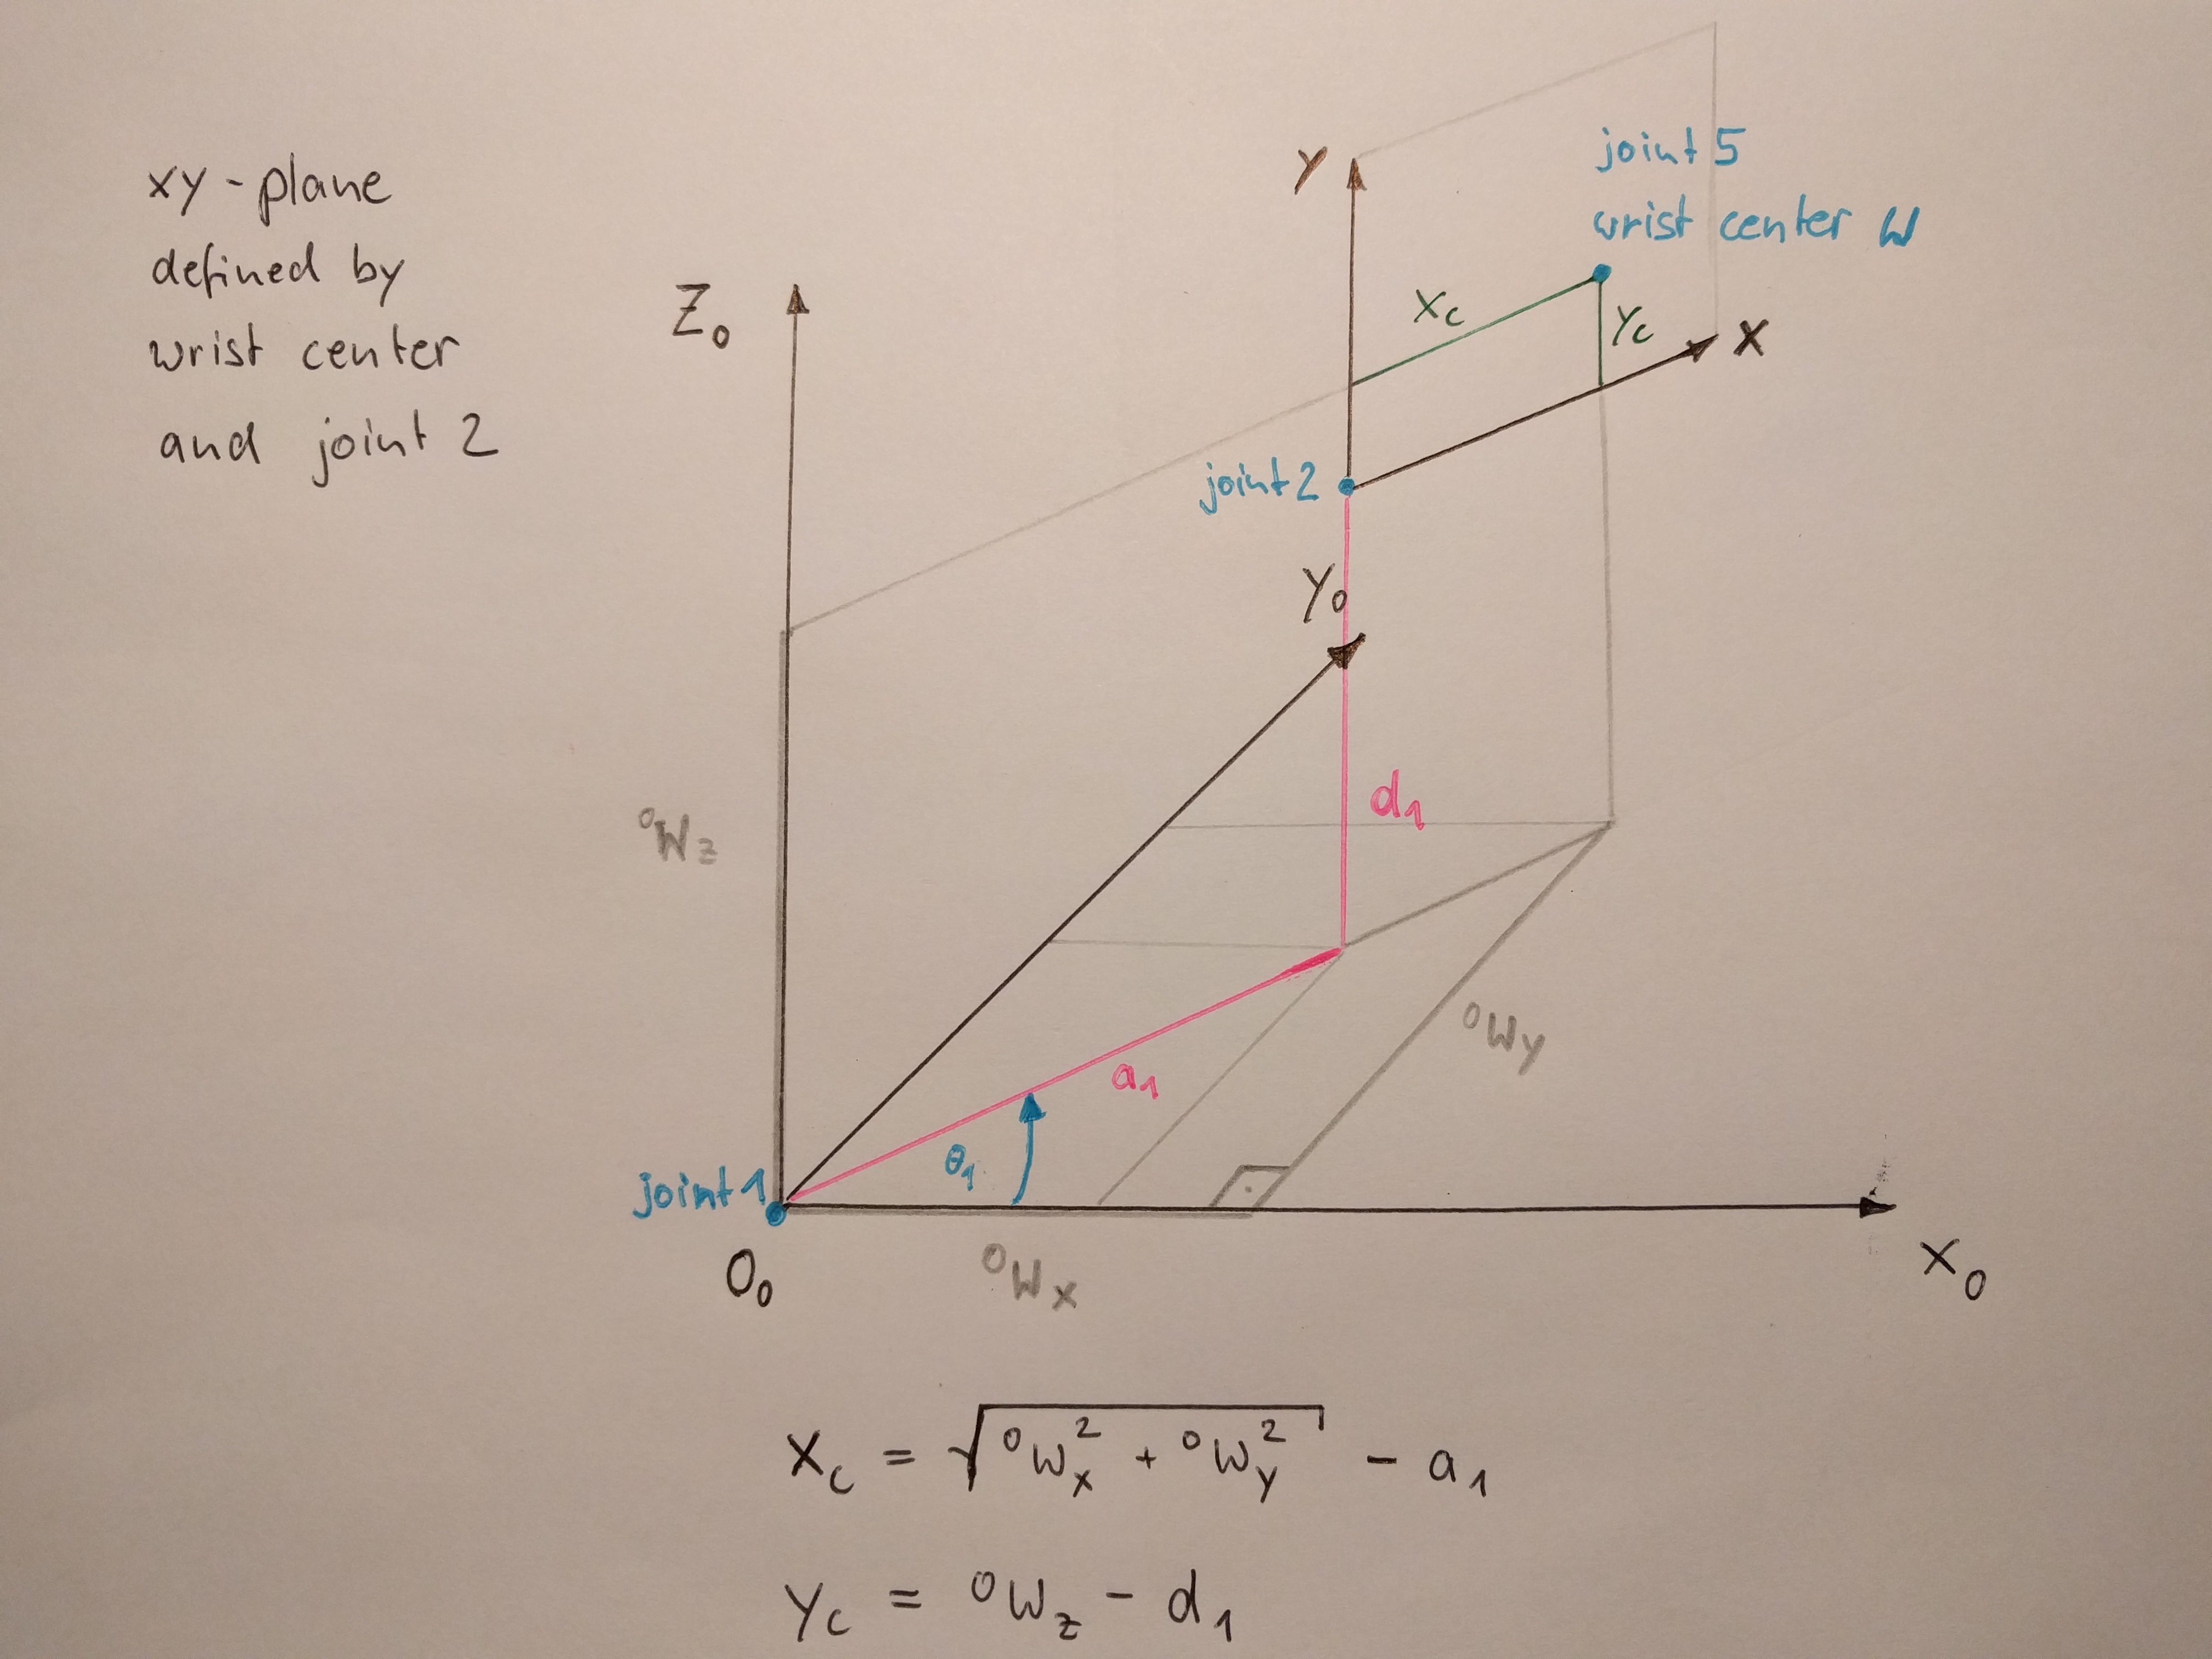 xy-plane
defined by
wrist center
and joint 2
Y
joint 5
wrist center W
Z₀
Xc
Yc
X
joint 2
Y₀
⁰Wz
d₁
⁰Wy
a₁
θ₁
joint 1
O₀
⁰Wx
X₀
Xc = √(⁰Wx² + ⁰Wy²) - a₁
Yc = ⁰Wz - d₁